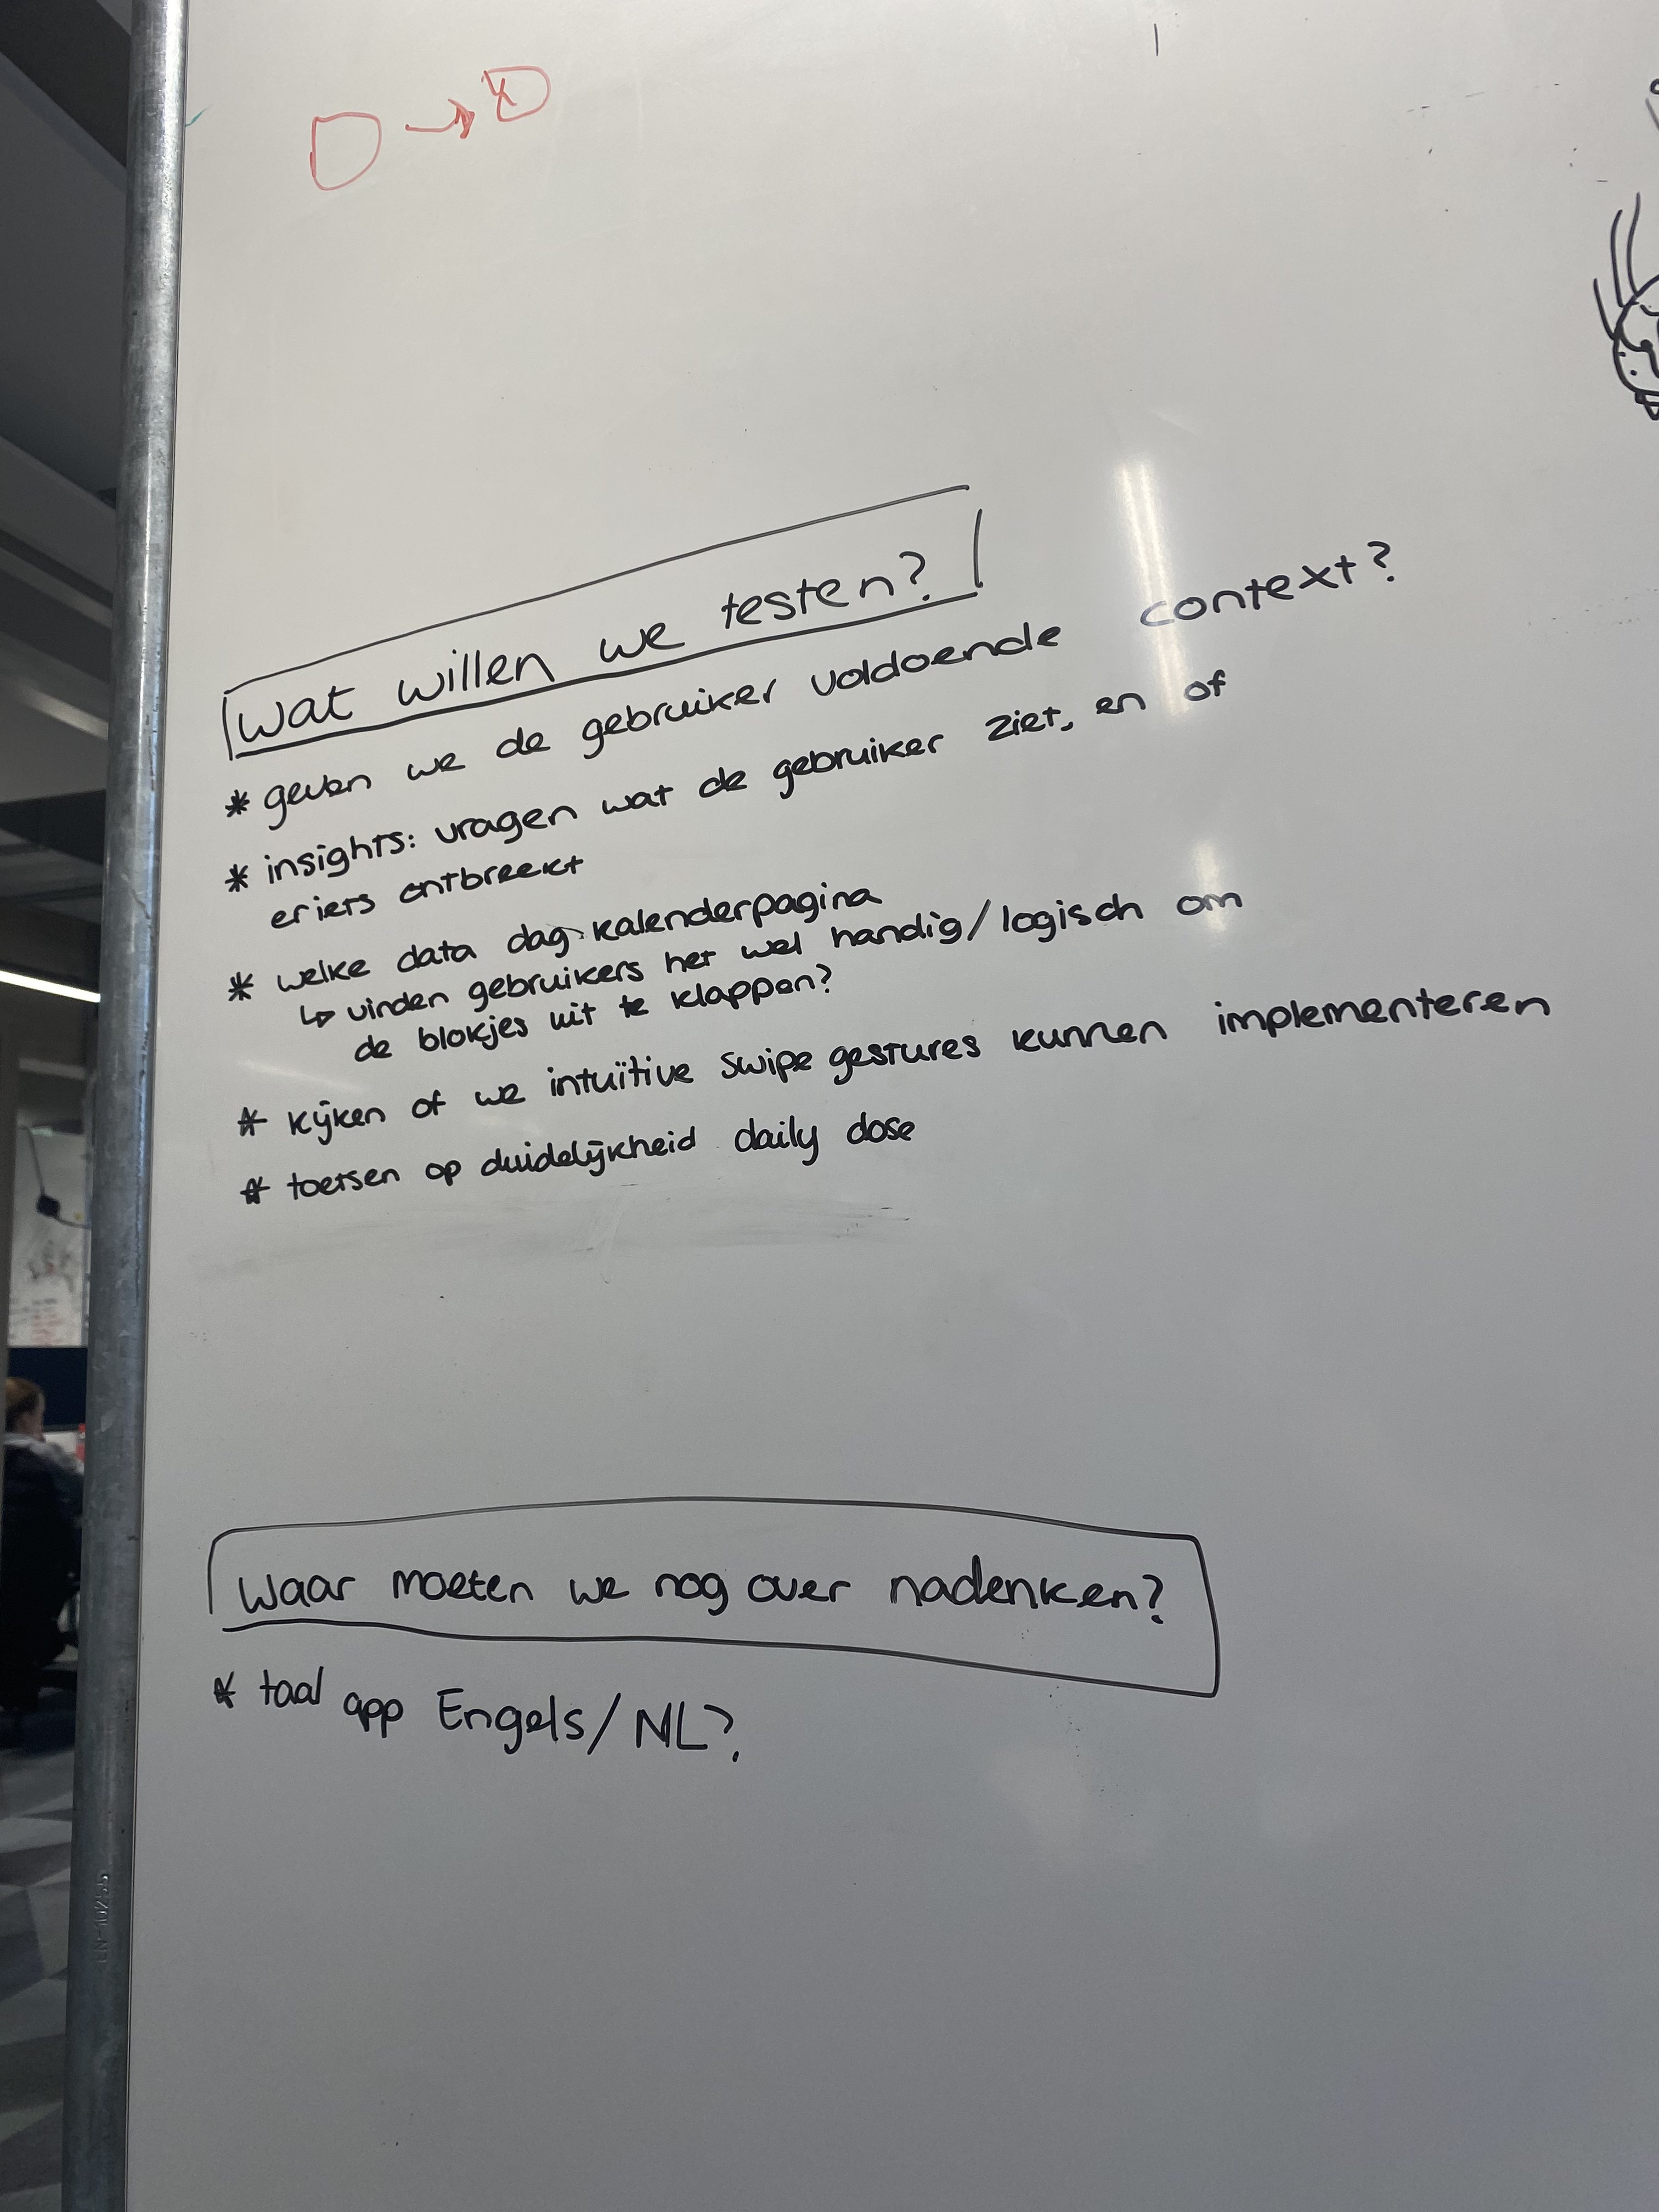 wat willen we testen?
* geven we de gebruiker voldoende context?
* insights: vragen wat de gebruiker ziet, en of
er iets ontbreekt
* welke data dag kalenderpagina
↳ vinden gebruikers het wel handig/logisch om
de blokjes uit te klappen?
* kijken of we intuïtive swipe gestures kunnen implementeren
* toetsen op duidelijkheid daily dose
Waar moeten we nog over nadenken?
* taal app Engels/NL?